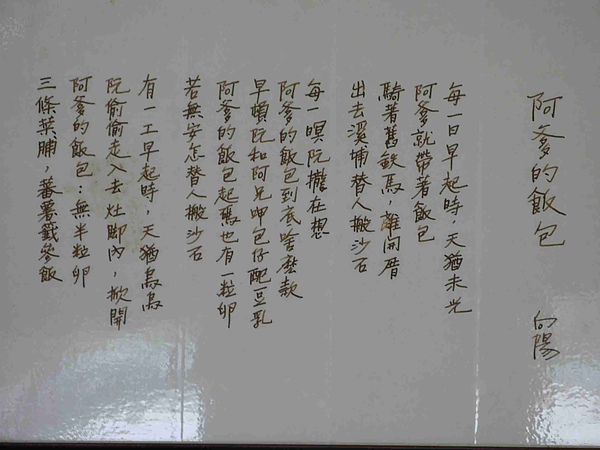 阿爹的飯包
向陽
每一日早起時，天猶未光
阿爹就帶著飯包
騎著舊鐵馬，離開厝
出去溪埔替人搬沙石
每一暝阮攏在想
阿爹的飯包到底啥麼款
早頓阮和阿兄呷包仔配豆乳
阿爹的飯包起碼也有一粒卵
若無安怎替人搬沙石
有一工早起時，天猶烏烏
阮偷偷走入去灶腳內，掀開
阿爹的飯包：無半粒卵
三條菜脯，蕃薯籤參飯